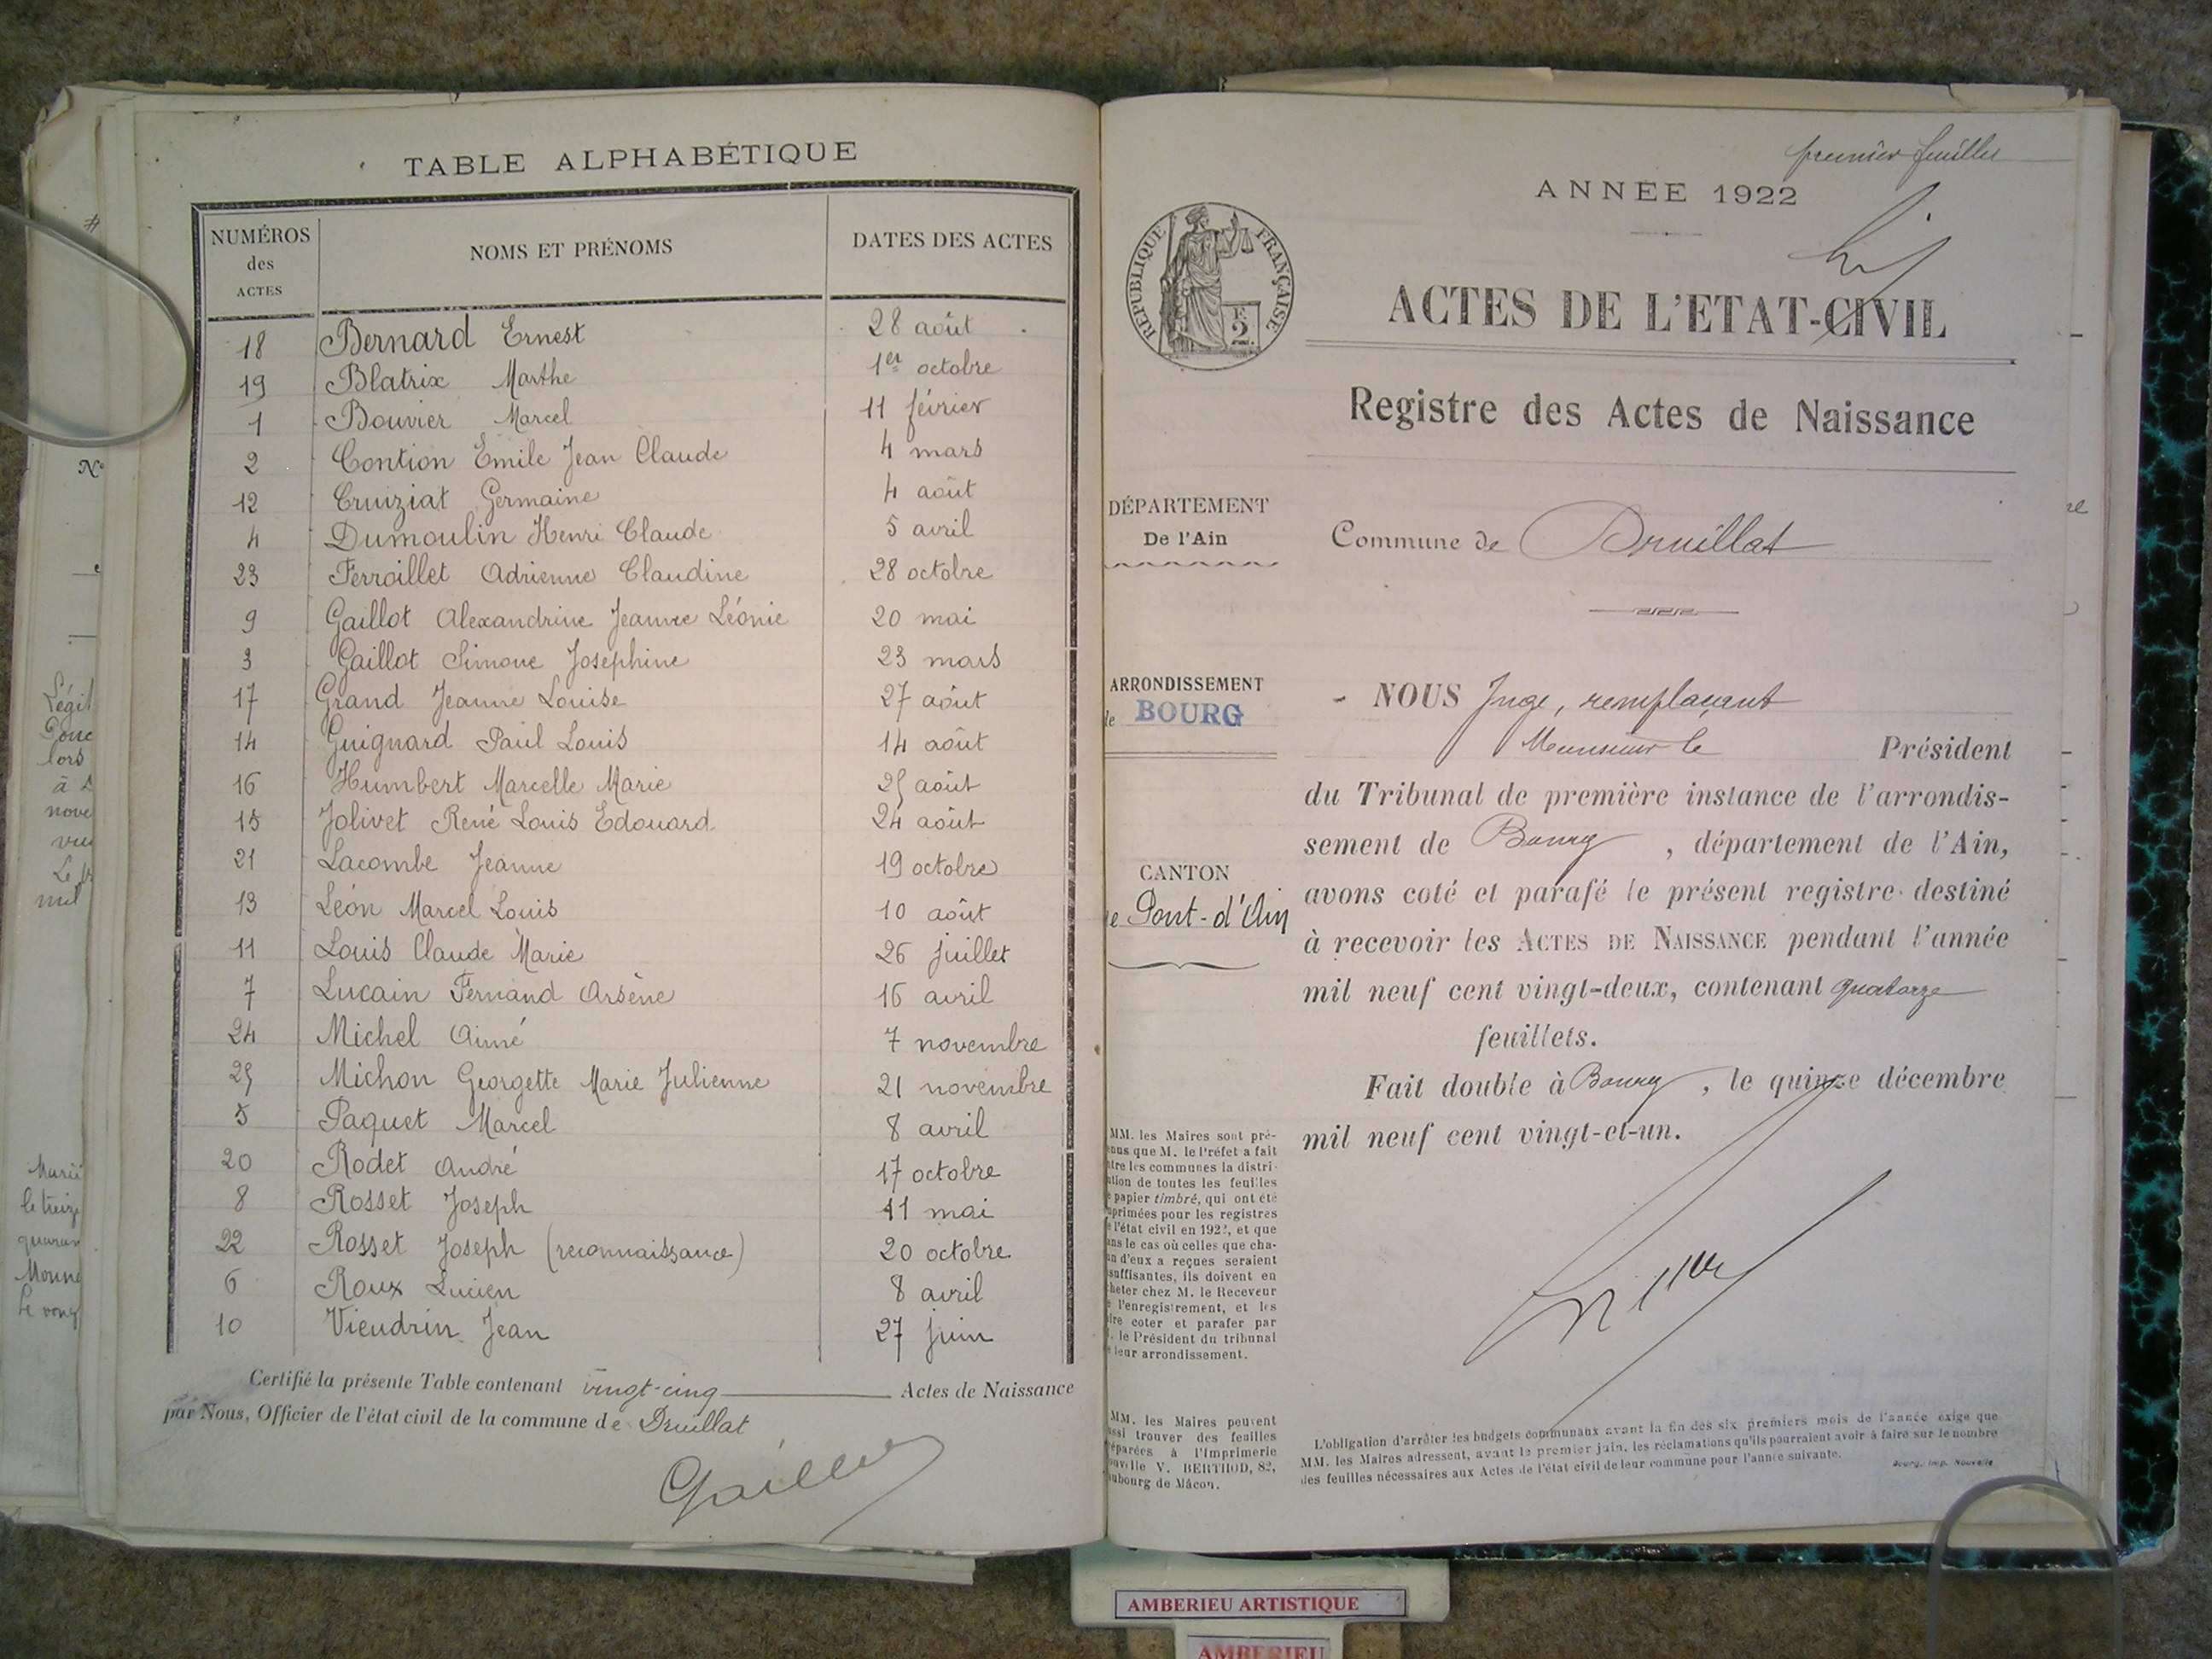 TABLE ALPHABÉTIQUE
NUMÉROS des ACTES NOMS ET PRÉNOMS DATES DES ACTES
18 Bernard Ernest 28 août
19 Blatrix Marthe 1er octobre
1 Bouvier Marcel 11 février
2 Contion Emile Jean Claude 4 mars
12 Cruiziat Germaine 4 août
4 Dumoulin Henri Claude 5 avril
23 Ferroillet Adrienne Claudine 28 octobre
9 Gaillot Alexandrine Jeanne Léonie 20 mai
3 Gaillot Simone Josephine 23 mars
17 Grand Jeanne Louise 27 août
14 Guignard Paul Louis 14 août
16 Humbert Marcelle Marie 25 août
15 Jolivet René Louis Edouard 24 août
21 Lacombe Jeanne 19 octobre
13 Léon Marcel Louis 10 août
11 Louis Claude Marie 26 juillet
7 Lucain Fernand Arsène 16 avril
24 Michel Aimé 7 novembre
25 Michon Georgette Marie Julienne 21 novembre
5 Paquet Marcel 8 avril
20 Rodet André 17 octobre
8 Rosset Joseph 11 mai
22 Rosset Joseph (reconnaissance) 20 octobre
6 Roux Lucien 8 avril
10 Vieudrin Jean 27 juin
Certifié la présente Table contenant vingt-cinq Actes de Naissance
par Nous, Officier de l'état civil de la commune de Druillat
premier feuillet
ANNÉE 1922
RÉPUBLIQUE FRANÇAISE
F. 2
ACTES DE L'ETAT-CIVIL
Registre des Actes de Naissance
DÉPARTEMENT
De l'Ain
Commune de Druillat
ARRONDISSEMENT
de BOURG
CANTON
de Pont-d'Ain
- NOUS Juge, remplaçant
Monsieur le Président
du Tribunal de première instance de l'arrondis-
sement de Bourg, département de l'Ain,
avons coté et parafé le présent registre destiné
à recevoir les ACTES DE NAISSANCE pendant l'année
mil neuf cent vingt-deux, contenant quatorze
feuillets.
Fait double à Bourg, le quinze décembre
mil neuf cent vingt-et-un.
MM. les Maires sont pré-
nus que M. le Préfet a fait
tre les communes la distri-
ution de toutes les feuilles
e papier timbré, qui ont été
primées pour les registres
e l'état civil en 1922, et que
ans le cas où celles que cha-
n d'eux a reçues seraient
suffisantes, ils doivent en
heter chez M. le Receveur
e l'enregistrement, et les
ire coter et parafer par
. le Président du tribunal
e leur arrondissement.
MM. les Maires peuvent
ssi trouver des feuilles
éparées à l'Imprimerie
ouvelle V. BERTHOD, 82,
ubourg de Mâcon.
L'obligation d'arrêter les budgets communaux avant la fin des six premiers mois de l'année exige que
MM. les Maires adressent, avant le premier juin, les réclamations qu'ils pourraient avoir à faire sur le nombre
des feuilles nécessaires aux Actes de l'état civil de leur commune pour l'année suivante.
Bourg, Imp. Nouvelle
AMBERIEU ARTISTIQUE
AMBERIEU